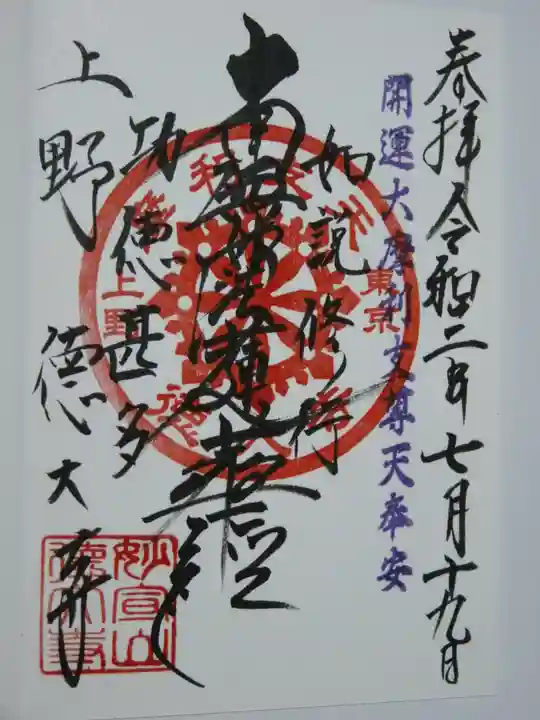 奉拝 令和二年七月十九日
開運大摩利支尊天奉安
如説修行
南無妙法蓮華経
功徳甚多
上野 徳大寺
東京
上野
妙宣山
徳大寺